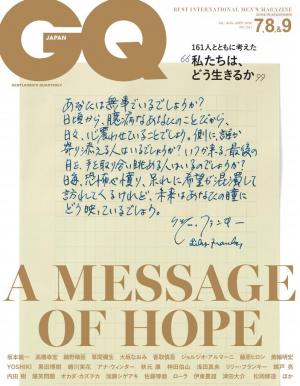 BEST INTERNATIONAL MEN'S MAGAZINE
GQ
JAPAN
GENTLEMEN'S QUARTERLY
7,8,&9
161人とともに考えた
“私たちは、
どう生きるか”
あなたは無事でいるでしょうか?
日頃から、臆病なあなたのことだから、
日々、心震わせていることでしょう。側に、誰か
寄り添える人はいるでしょうか? いつか来る、最後の
日と、手を取り合い眺める人はいるのでしょうか?
毎日、恐怖や憤り、呆れに希望が混濁して
訪れてくるけれど、未来はあなたの瞳に
どう映っているでしょう。
リリー・フランキー
Lily Franky
A MESSAGE
OF HOPE
坂本龍一 高橋幸宏 細野晴臣 草間彌生 大坂なおみ 香取慎吾 ジョルジオ・アルマーニ 藤原ヒロシ 美輪明宏
YOSHIKI 黒田博樹 蜷川実花 アナ・ウィンター 秋元康 神田伯山 浅田真央 リリー・フランキー 錦戸亮
内田裕 爆笑問題 オカダ・カズチカ 加藤シゲアキ 佐藤琢磨 ローラ 伊東豊雄 津田大介 松岡修造 ほか